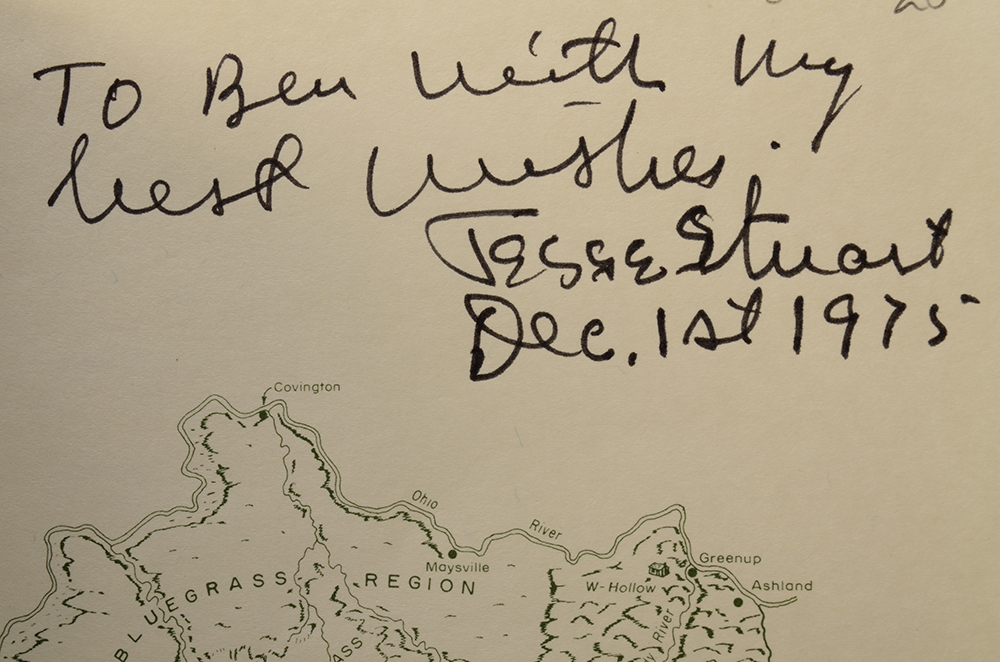 To Ben with my
best wishes.
Jesse Stuart
Dec. 1st 1975
Covington
Ohio River
Maysville
Greenup
W-Hollow
Ashland
BLUEGRASS REGION
River